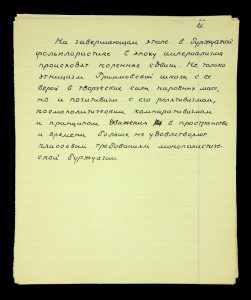 На завершающем этапе в буржуазной
фольклористике в эпоху империализма
происходят коренные сдвиги. Не только
этницизм Гриммовской школы с ее
верой в творческие силы народных масс,
но и позитивизм с его релятивизмом,
космополитическим компаративизмом
и принципом движения в пространстве
и времени больше не удовлетворяют
классовым требованиям монополистиче-
ской буржуазии.